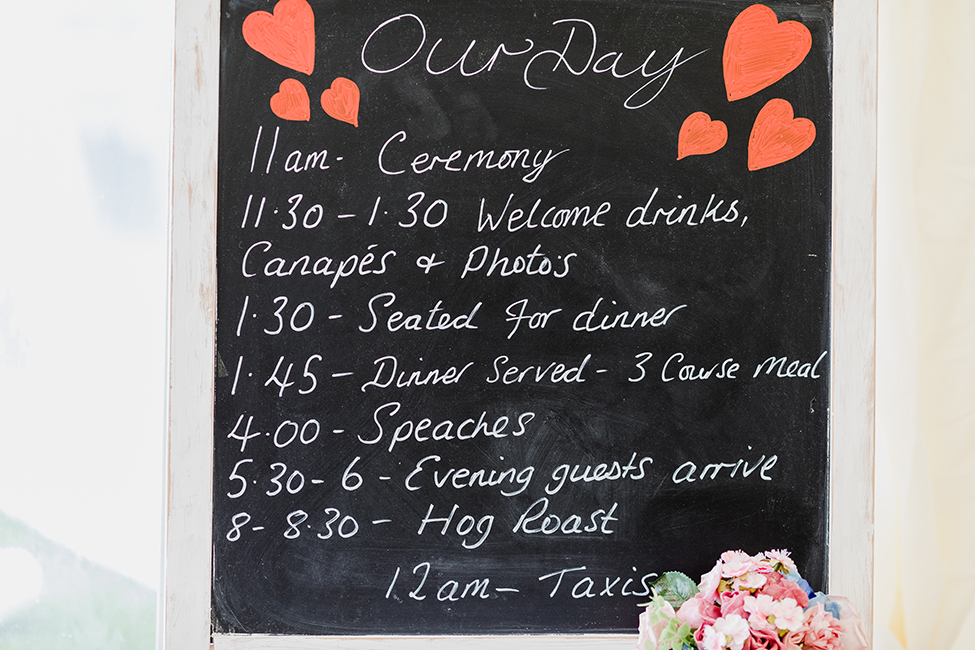 Our Day
11am- Ceremony
11.30 - 1.30 Welcome drinks,
Canapés & Photo's
1.30 - Seated for dinner
1.45 - Dinner Served - 3 Course Meal
4.00 - Speaches
5.30 - 6 - Evening guests arrive
8 - 8.30 - Hog Roast
12am - Taxis